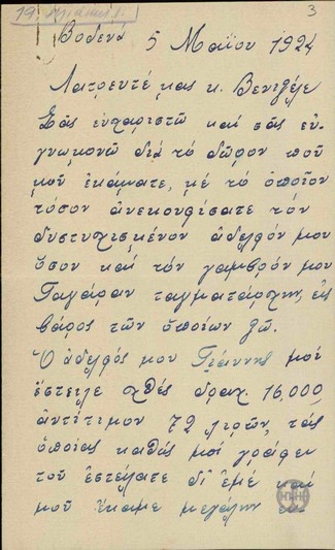 3
Βοδενά 5 Μαΐου 1924
Λατρευτέ μας κ. Βενιζέλε
Σᾶς εὐχαριστῶ καί σᾶς εὐ-
γνωμονῶ διά τό δῶρον πού
μοῦ ἐκάματε, μέ τό ὁποῖον
τόσον ἀνεκουφίσατε τόν
δυστυχισμένον ἀδελφόν μου
ὅσον καί τόν γαμβρόν μου
ταγματάρχην, εἰς
βάρος τῶν ὁποίων ζῶ.
Ὁ ἀδελφός μου Γιάννης μοί
ἔστειλε χθές δραχ. 16,000
ἀντίτιμον 72 λιρῶν, τάς
ὁποίας καθώς μοί γράφει
τοῦ ἐστείλατε δι' ἐμέ καί
μοῦ ἔκαμε μεγάλην